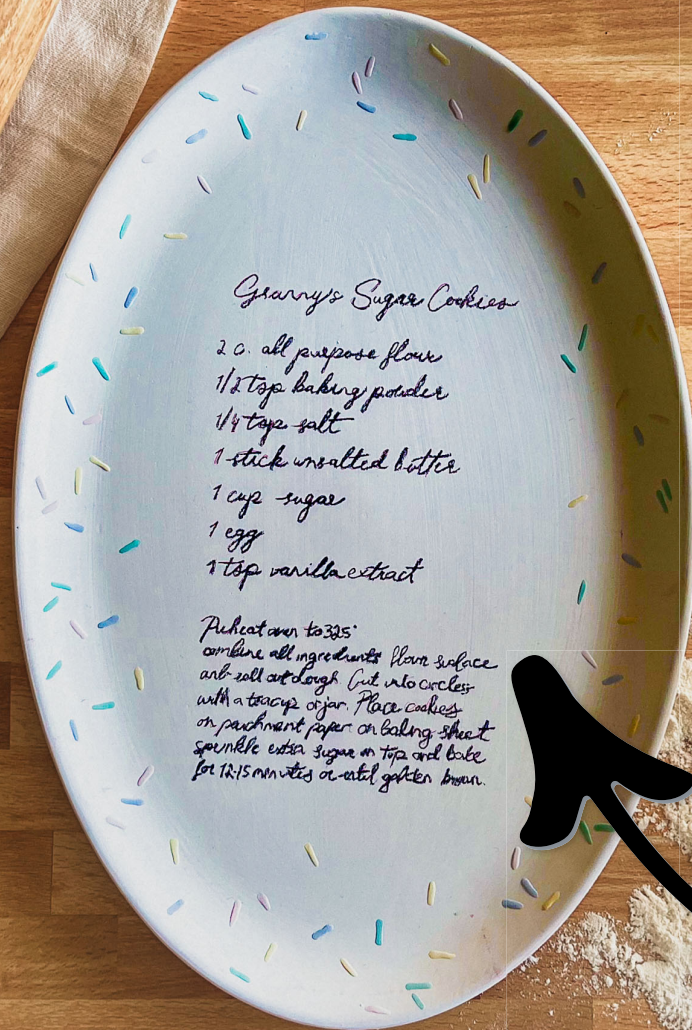 Granny's Sugar Cookies
2 c. all purpose flour
1/2 tsp baking powder
1/4 tsp salt
1 stick unsalted butter
1 cup sugar
1 egg
1 tsp vanilla extract
Preheat oven to 325°
combine all ingredients flour surface
and roll out dough. Cut into circles
with a teacup or jar. Place cookies
on parchment paper on baking sheet
sprinkle extra sugar on top and bake
for 12-15 minutes or until golden brown.